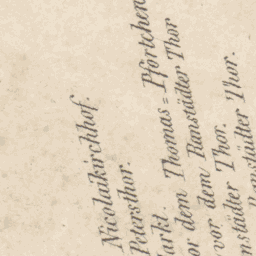 Nicolaikirchhof.
Petersthor.
arkt.
or dem Thomas=Pförtchen
vor dem Ranstädter Thor
nstädter Thor.
Ranstädter Thor.